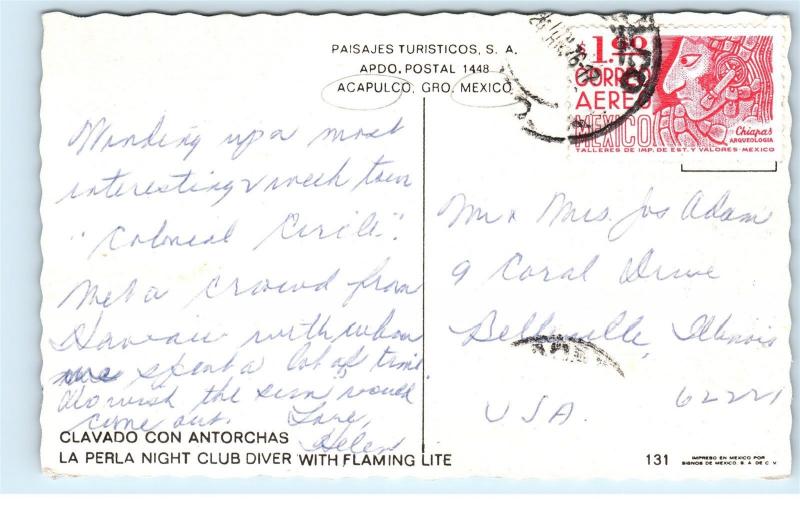 PAISAJES TURISTICOS, S. A.
APDO. POSTAL 1448
ACAPULCO, GRO. MEXICO
$1.60
CORREO
AEREO
MEXICO
Chiapas
ARQUEOLOGIA
TALLERES DE IMP. DE EST. Y VALORES-MEXICO
Winding up a most
interesting 2 week tour
"Colonial Circle".
Met a crowd from
Hawaii with whom
we spent a lot of time.
Also wish the sun would
come out. Love,
Helen
Mr & Mrs. Jos Adam
9 Coral Drive
Belleville, Illinois
USA. 62221
CLAVADO CON ANTORCHAS
LA PERLA NIGHT CLUB DIVER WITH FLAMING LITE
131
IMPRESO EN MEXICO POR
SIGNOS DE MEXICO, S. A. DE C. V.